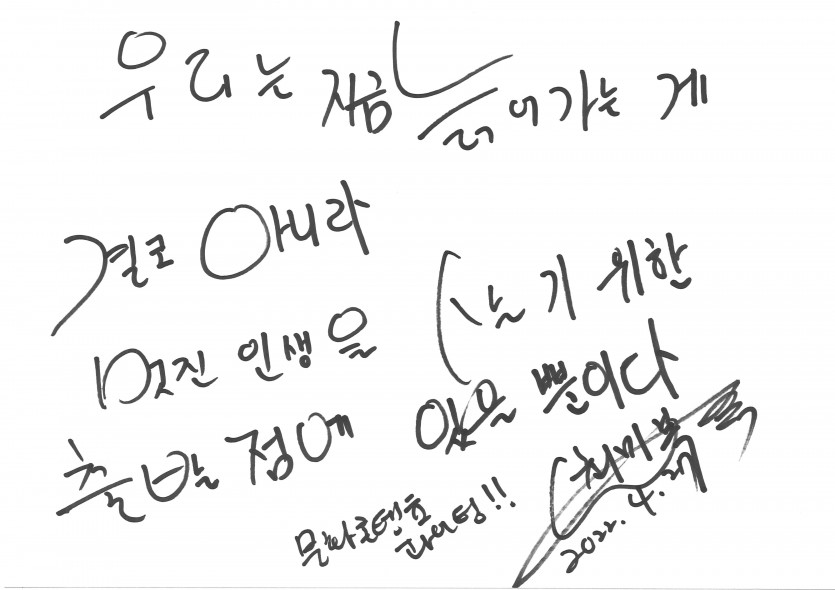 우리는 지금 늙어가는 게
결코 아니라
멋진 인생을 사는 기 위한
출발점에 있을 뿐이다
파이팅!!
2022. 4. 27